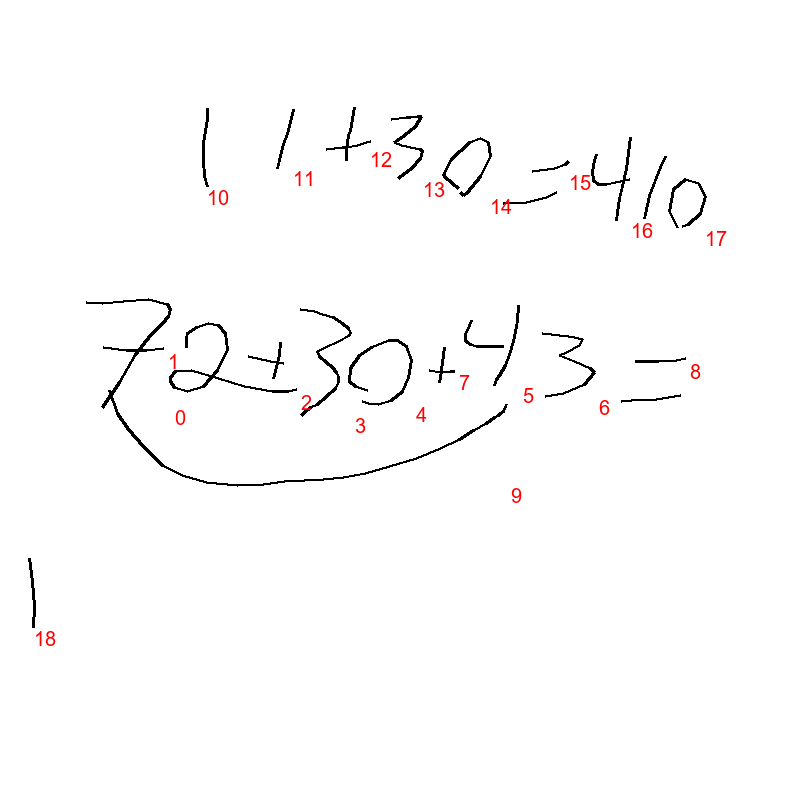 11+30=410
10 11 12 13 14 15 16 17
72+30+43=
1 0 2 3 4 7 5 6 8
9
1
18